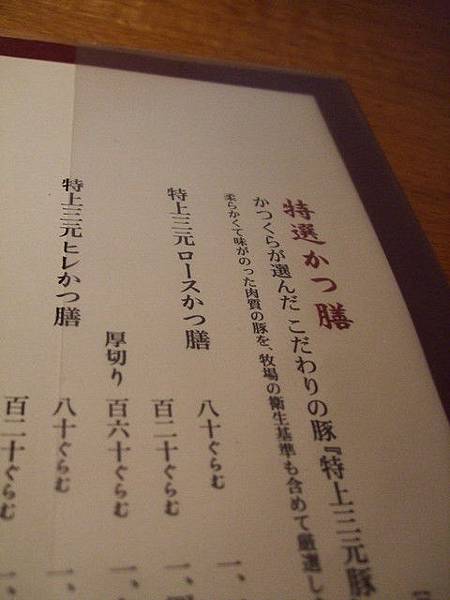 特選かつ膳
かつくらが選んだ こだわりの豚『特上三元豚
柔らかくて味がのった肉質の豚を、牧場の衛生基準も含めて厳選し
特上三元 ロースかつ膳
八十ぐらむ 一、
百二十ぐらむ 一、
厚切り 百六十ぐらむ 一、
特上三元 ヒレかつ膳
八十ぐらむ 一、
百二十ぐらむ 一、